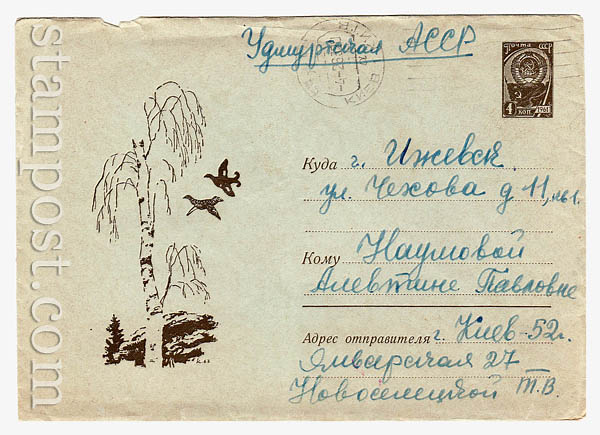 Удмуртская АССР
ПОЧТА СССР
4 коп. 1961
Куда г. Ижевск.
ул. Чехова д 11, кв 1.
Кому Наумовой
Алевтине Павловне
Адрес отправителя г. Киев-52.
Январская 27
Новоселецкой Т.В.
stampost.com